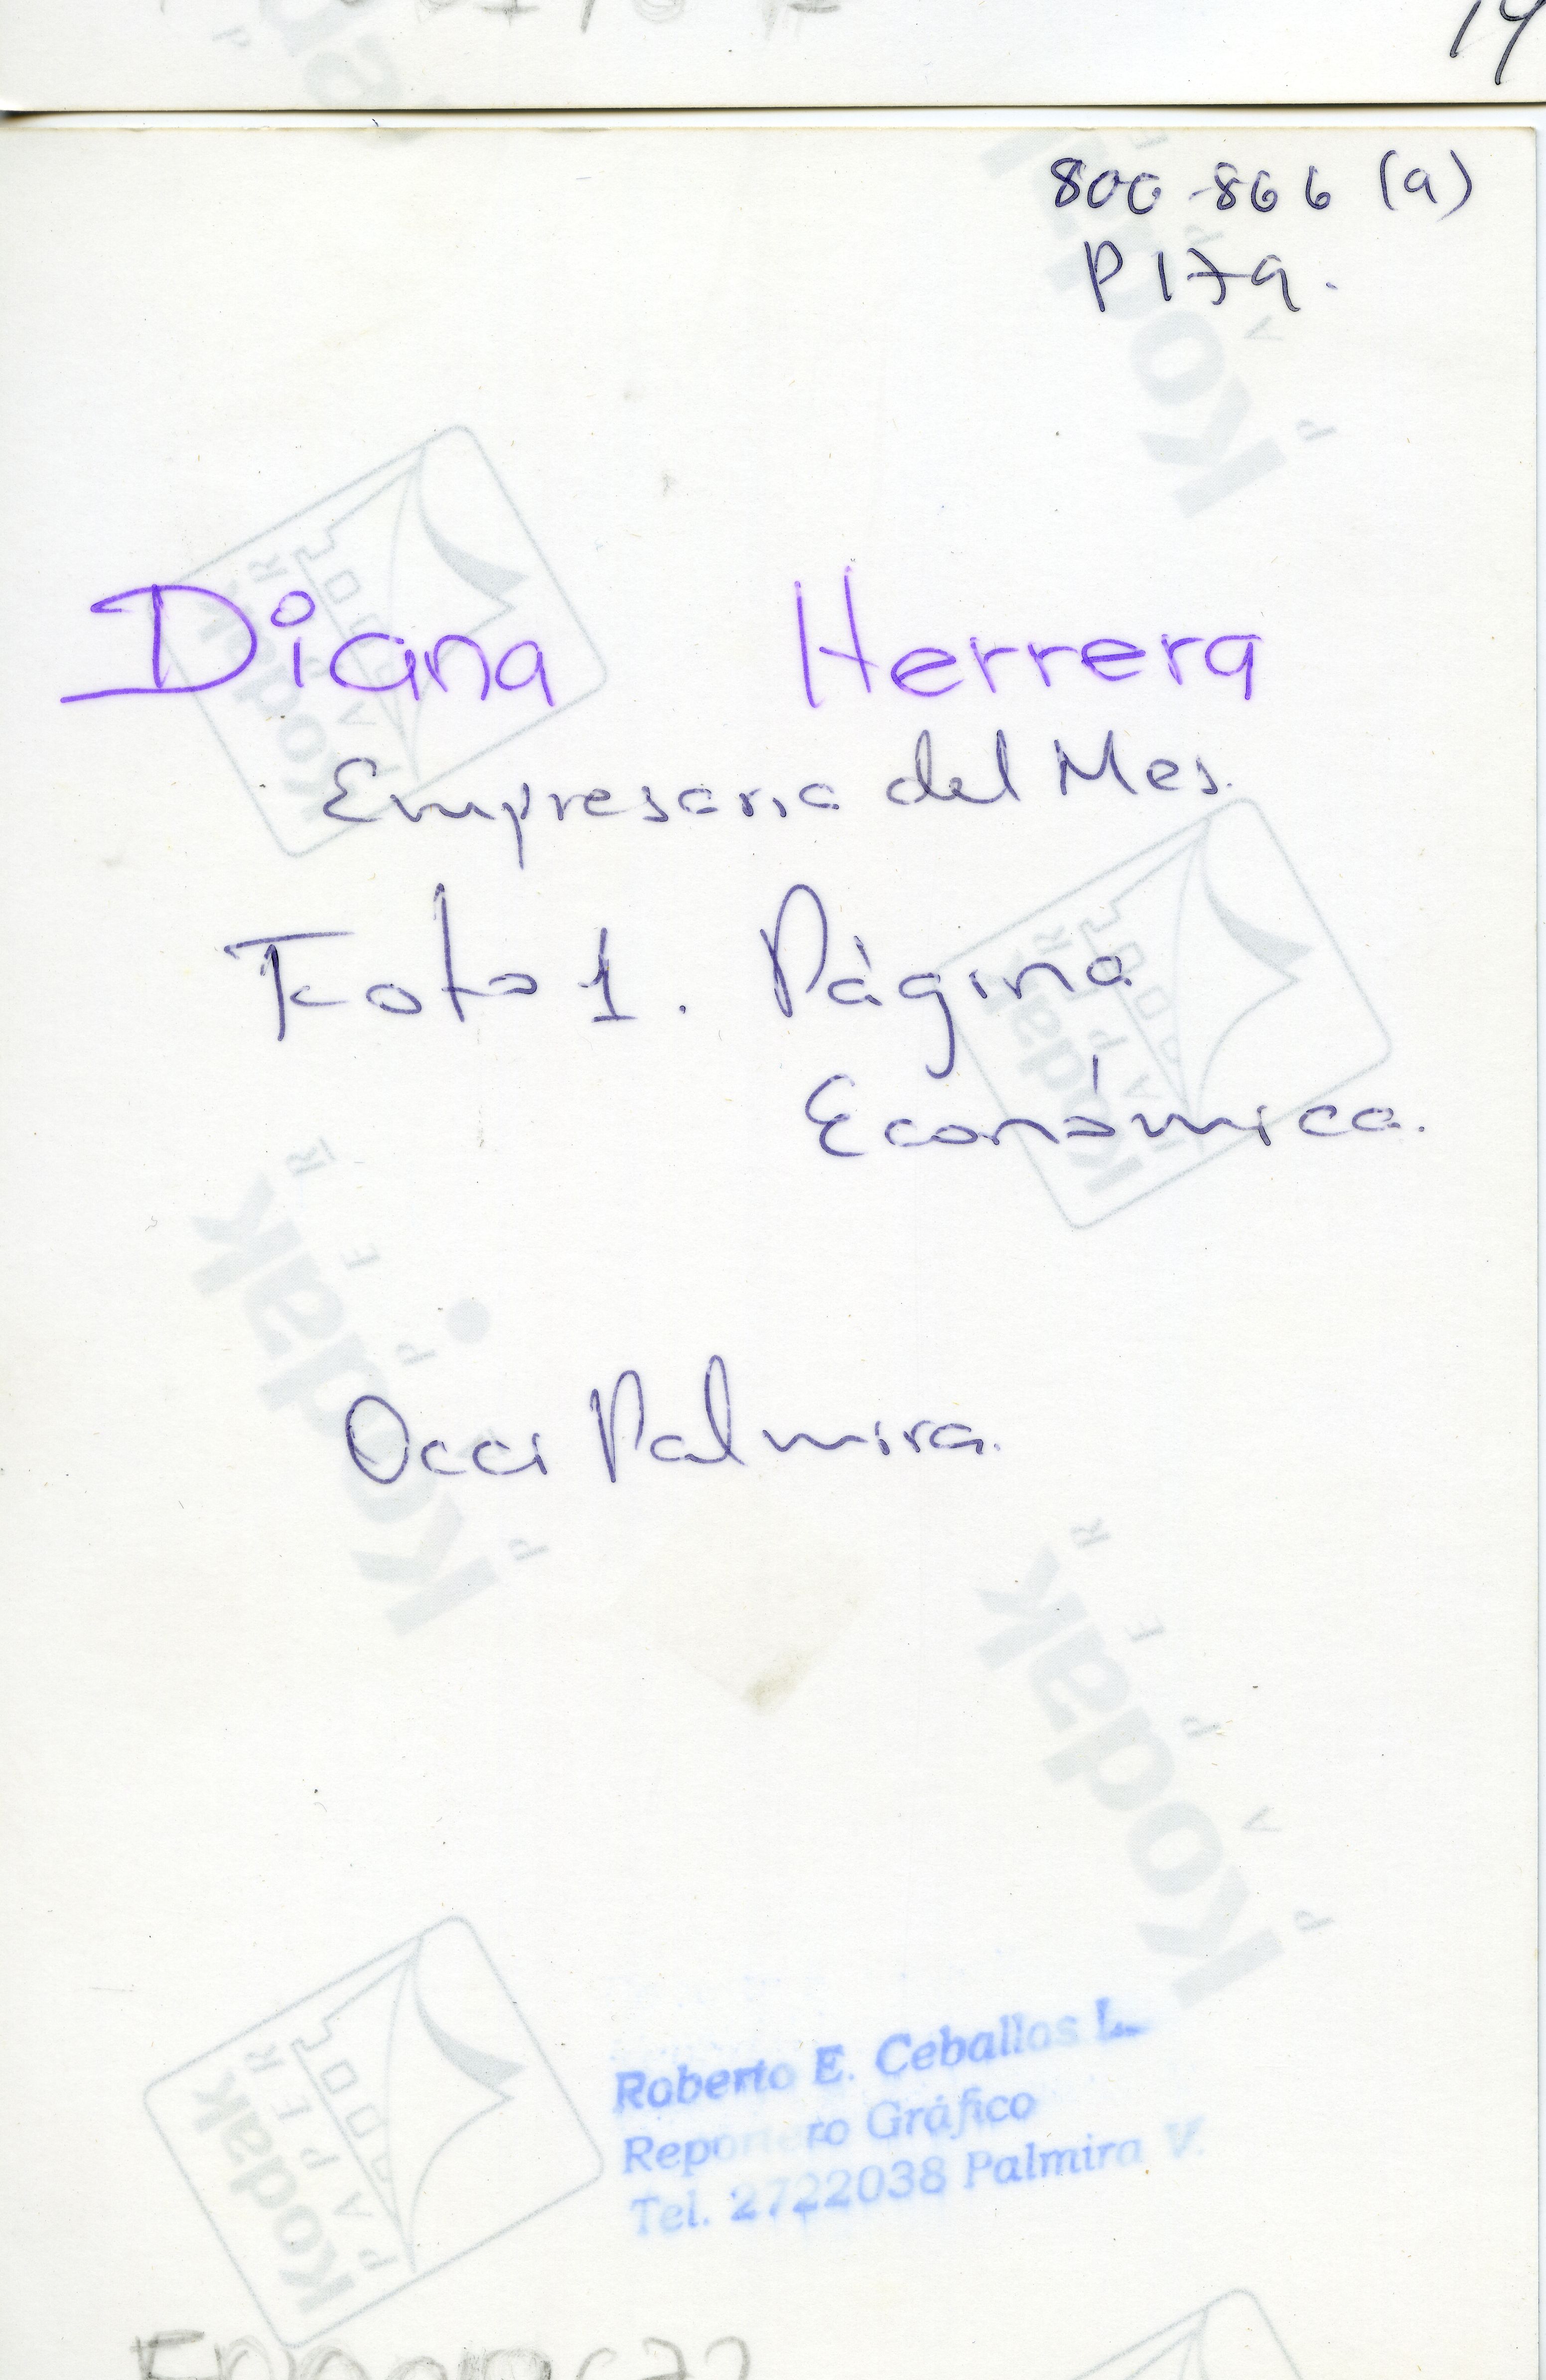 14
800-866 (a)
P 17a.
Diana Herrera
Empresaria del Mes.
Foto 1. Página
Económica.
Occi Palmira.
Roberto E. Ceballos L.
Reportero Gráfico
Tel. 2722038 Palmira V.
Kodak
PAPER
PAPEL